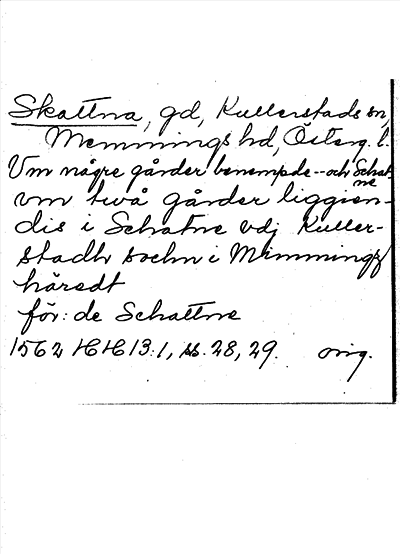 Skattna, gd, Kullerstads sn,
Memmings hd, Österg. l.
Vm någre gårder benempde -- och Schatne
vm twå gårder liggien-
dis i Schatne vdj Kuller-
stadh sochn i Mimmingx
häredt
för: de Schattne
1562 HH 13:1, ss. 28, 29. orig.